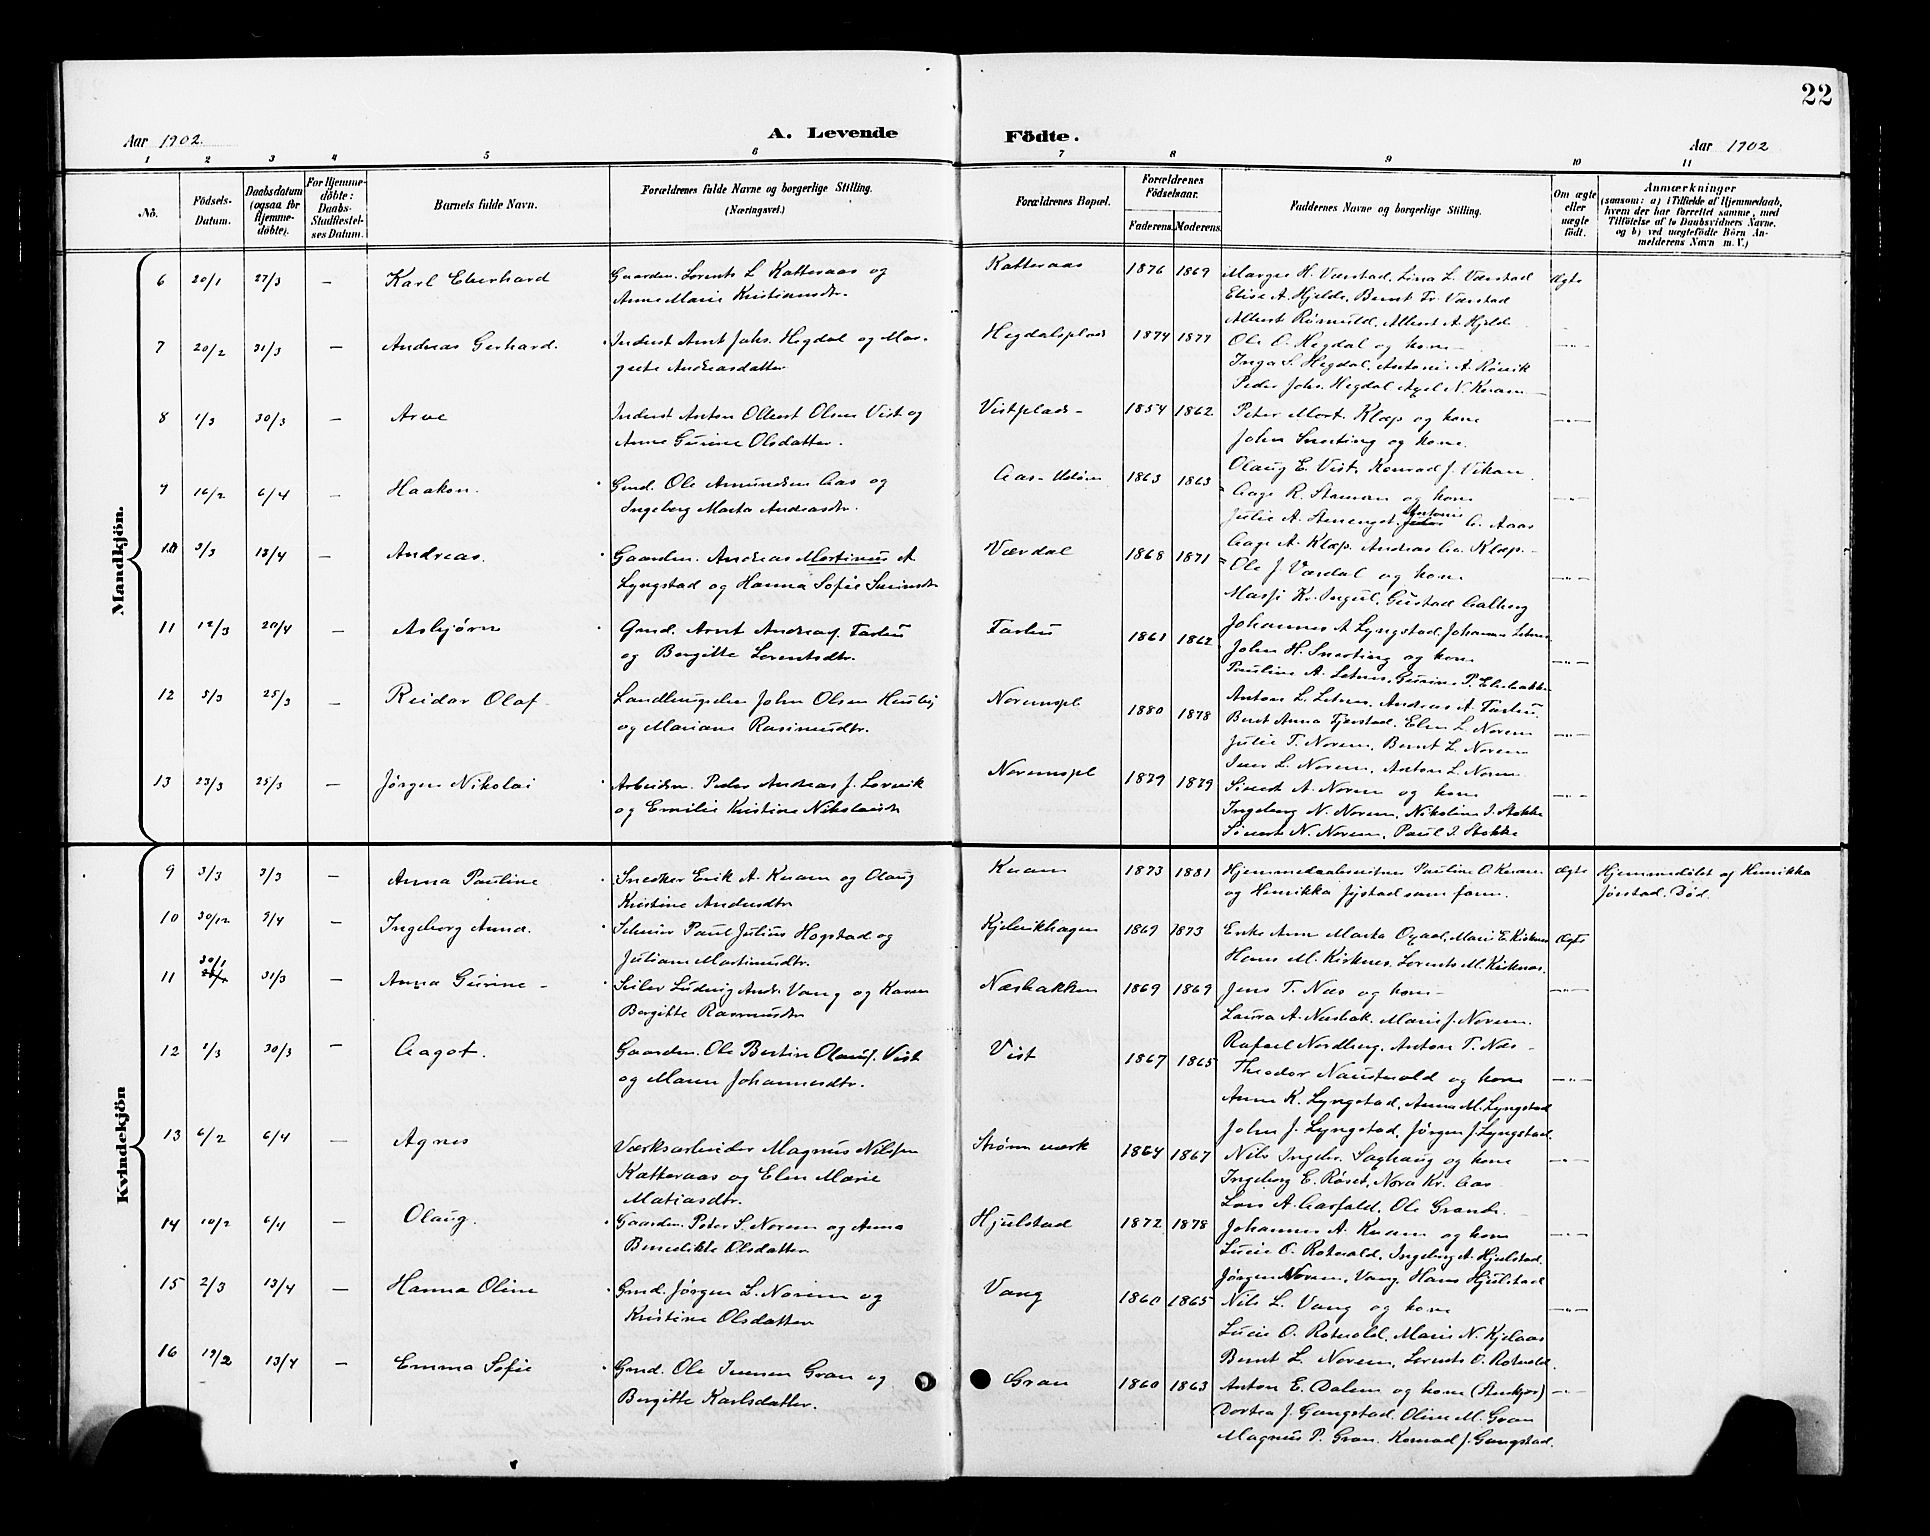 22
Aar 1902.
A. Levende
Födte.
Aar 1902
1 2 3 4 5 6 7 8 9 10 11
No.
Födsels-Datum.
Daabsdatum (ogsaa for Hjemme-döbte).
For Hjemme-döbte: Daabs-Stadfæstel-ses Datum.
Barnets fulde Navn.
Forældrenes fulde Navne og borgerlige Stilling.
(Næringsvei.)
Forældrenes Bopæl.
Forældrenes Födselsaar.
Faderens. Moderens.
Faddernes Navne og borgerlige Stilling.
Om ægte eller uægte födt.
Anmærkninger
(saasom: a) i Tilfælde af Hjemmedaab,
hvem der har forrettet samme, med
Tilföielse af to Daabsvidners Navne,
og b) ved uægtefödte Börn An-
melderens Navn m. V.)
Mandkjön.
6 20/1 27/3 — Karl Eberhard Gaardm. Lorents L. Katteraas og Katteraas 1876 1869 H. Værstad, Lina L. Værstad Ægte
Anne Marie Kristiansdtr. Elise A. Hjelde, Bernt Fr. Værstad
Albert A. Hjelde
7 20/2 31/3 — Andreas Gerhard. Inderst Arnt Johs. Hegdal og Mar- Hegdalsplads 1874 1877 Ole O. Hegdal og kone — —„—
grete Andreasdatter Inga S. Hegdal, Antonie A. Rösvik
Peder Johs. Hegdal, Axel N. Kvam —
8 1/3 30/3 — Arve Inderst Anton Olsen Vist og Vistplads - 1854 1862 Peter Mort. Klæp og kone —„—
Anne Gurine Olsdatter. John Snerting og kone.
Olaug E. Vist, Konrad J. Vikan
9 16/2 6/4 — Haakon. Gmd. Ole Amundsen Aas og Aas - 1863 1863 Aage R. og kone —„—
Ingeborg Marta Andreasdtr. Julie A. Antonie A. Aas
10 3/3 13/4 — Andreas. Gaardm. Andreas Martinus A. Værdal 1868 1871 Aage A. Klæp. Andreas Aa. Klæp. —„—
Lyngstad og Hanna Sofie Ole J. Værdal og kone
Kr. Ingul, Gustad Aalberg
11 12/3 20/4 — Asbjørn Gmd. Arnt Andreas Tarlu 1861 1862 Johannes A. Lyngstad, —„—
og Bergitte Lorentsdtr. John H. Snerting og kone
12 5/3 25/3 — Reidar Olaf. John Olsen og Mariane Rasmusdtr. Noremspl 1880 1878 —„—
Julie T. Norem, Bernt L. Norem
13 23/3 25/3 — Jørgen Nikolai Arbeidsm. Peder Andreas J. Lorvik Noremspl 1879 1879 Iver L. Norem, Anton L. Norem —„—
og Emilie Kristine Nikolaisdtr Sivert A. Norem og kone
Ingeborg N. Norem, Nikoline I. Stokke
Sivert N. Norem, Paul I. Stokke
Kvindekjön
9 3/3 3/3 — Anna Pauline Snedker Erik A. Kvam og Olaug Kvam 1873 1881 Hjemmedaabsvitner Pauline O. Kvam Ægte Hjemmedöbt af Henrikka
Kristine Andersdtr og Henrikka som foran. Jörstad. Död.
10 30/12 3/4 — Ingeborg Anna. Paul Julius Hogstad og 1869 1873 Enke Anne Marta Oxaal, Marie E. Kirknes Ægte
Juliane Martinusdtr. Hans M. Kirknes, Lorents M. Kirknes.
11 30/1 31/3 — Anna Gurine - Seiler Ludvig Andr. Vang og Karen Næsbakken 1869 1869 Jens T. Næs og kone — —„—
Bergitte Rasmusdtr Laura A. Næsbak. Marie J. Norem.
Rafael Nordberg, Anton T. Næs —
12 1/3 30/3 — Aagot. Gaardm. Ole Bertin Olausf. Vist Vist 1867 1865 Theodor Naustvold og kone —„—
og Maren Johannesdtr. Anne K. Lyngstad, Anna M. Lyngstad
John J. Lyngstad, Jörgen J. Lyngstad.
13 6/2 6/4 — Agnes Værksarbeider Magnus Nilssen Strøm værk 1864 1867 Nils Ingebr. Saghaug og kone —„—
Katteraas og Elen Marie Ingeborg E. Röset, Nora Kr. Aas
Matiasdtr. A. Aasfald, Ole Grande.
14 10/2 6/4 — Olaug. Gaardm. Peter S. Norem og Anna Hjulstad 1872 1878 Johannes A. Kvam og kone —„—
Benedikte Olsdatter Lucie O. Rotvold, Ingeborg A. Hjulstad.
Jørgen Norem, Vang, Hans Hjulstad
15 2/3 13/4 — Hanna Oline Gmd. Jørgen L. Norem og Vang 1860 1865 Nils L. Vang og kone —„—
Kristine Olsdatter Lucie O. Rotvold, Marie N. Kjelaas
Bernt L. Norem, Lorents O. Rotvold.
16 19/2 13/4 — Emma Sofie Gmd. Ole Iversen Gran og Gran 1860 1863 Anton E. Dalem og kone (Stenkjær) —„—
Bergitte Karlsdatter. Dortea J. Gangstad, Oline M. Gran
Magnus P. Gran. Konrad J. Gangstad.